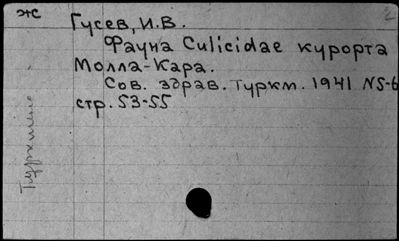 ЖС
Гусев, И.В.
Фауна Culicidae курорта
Молла-Кара.
Сов. здрав. Туркм. 1941 N5-6
стр. 53-55